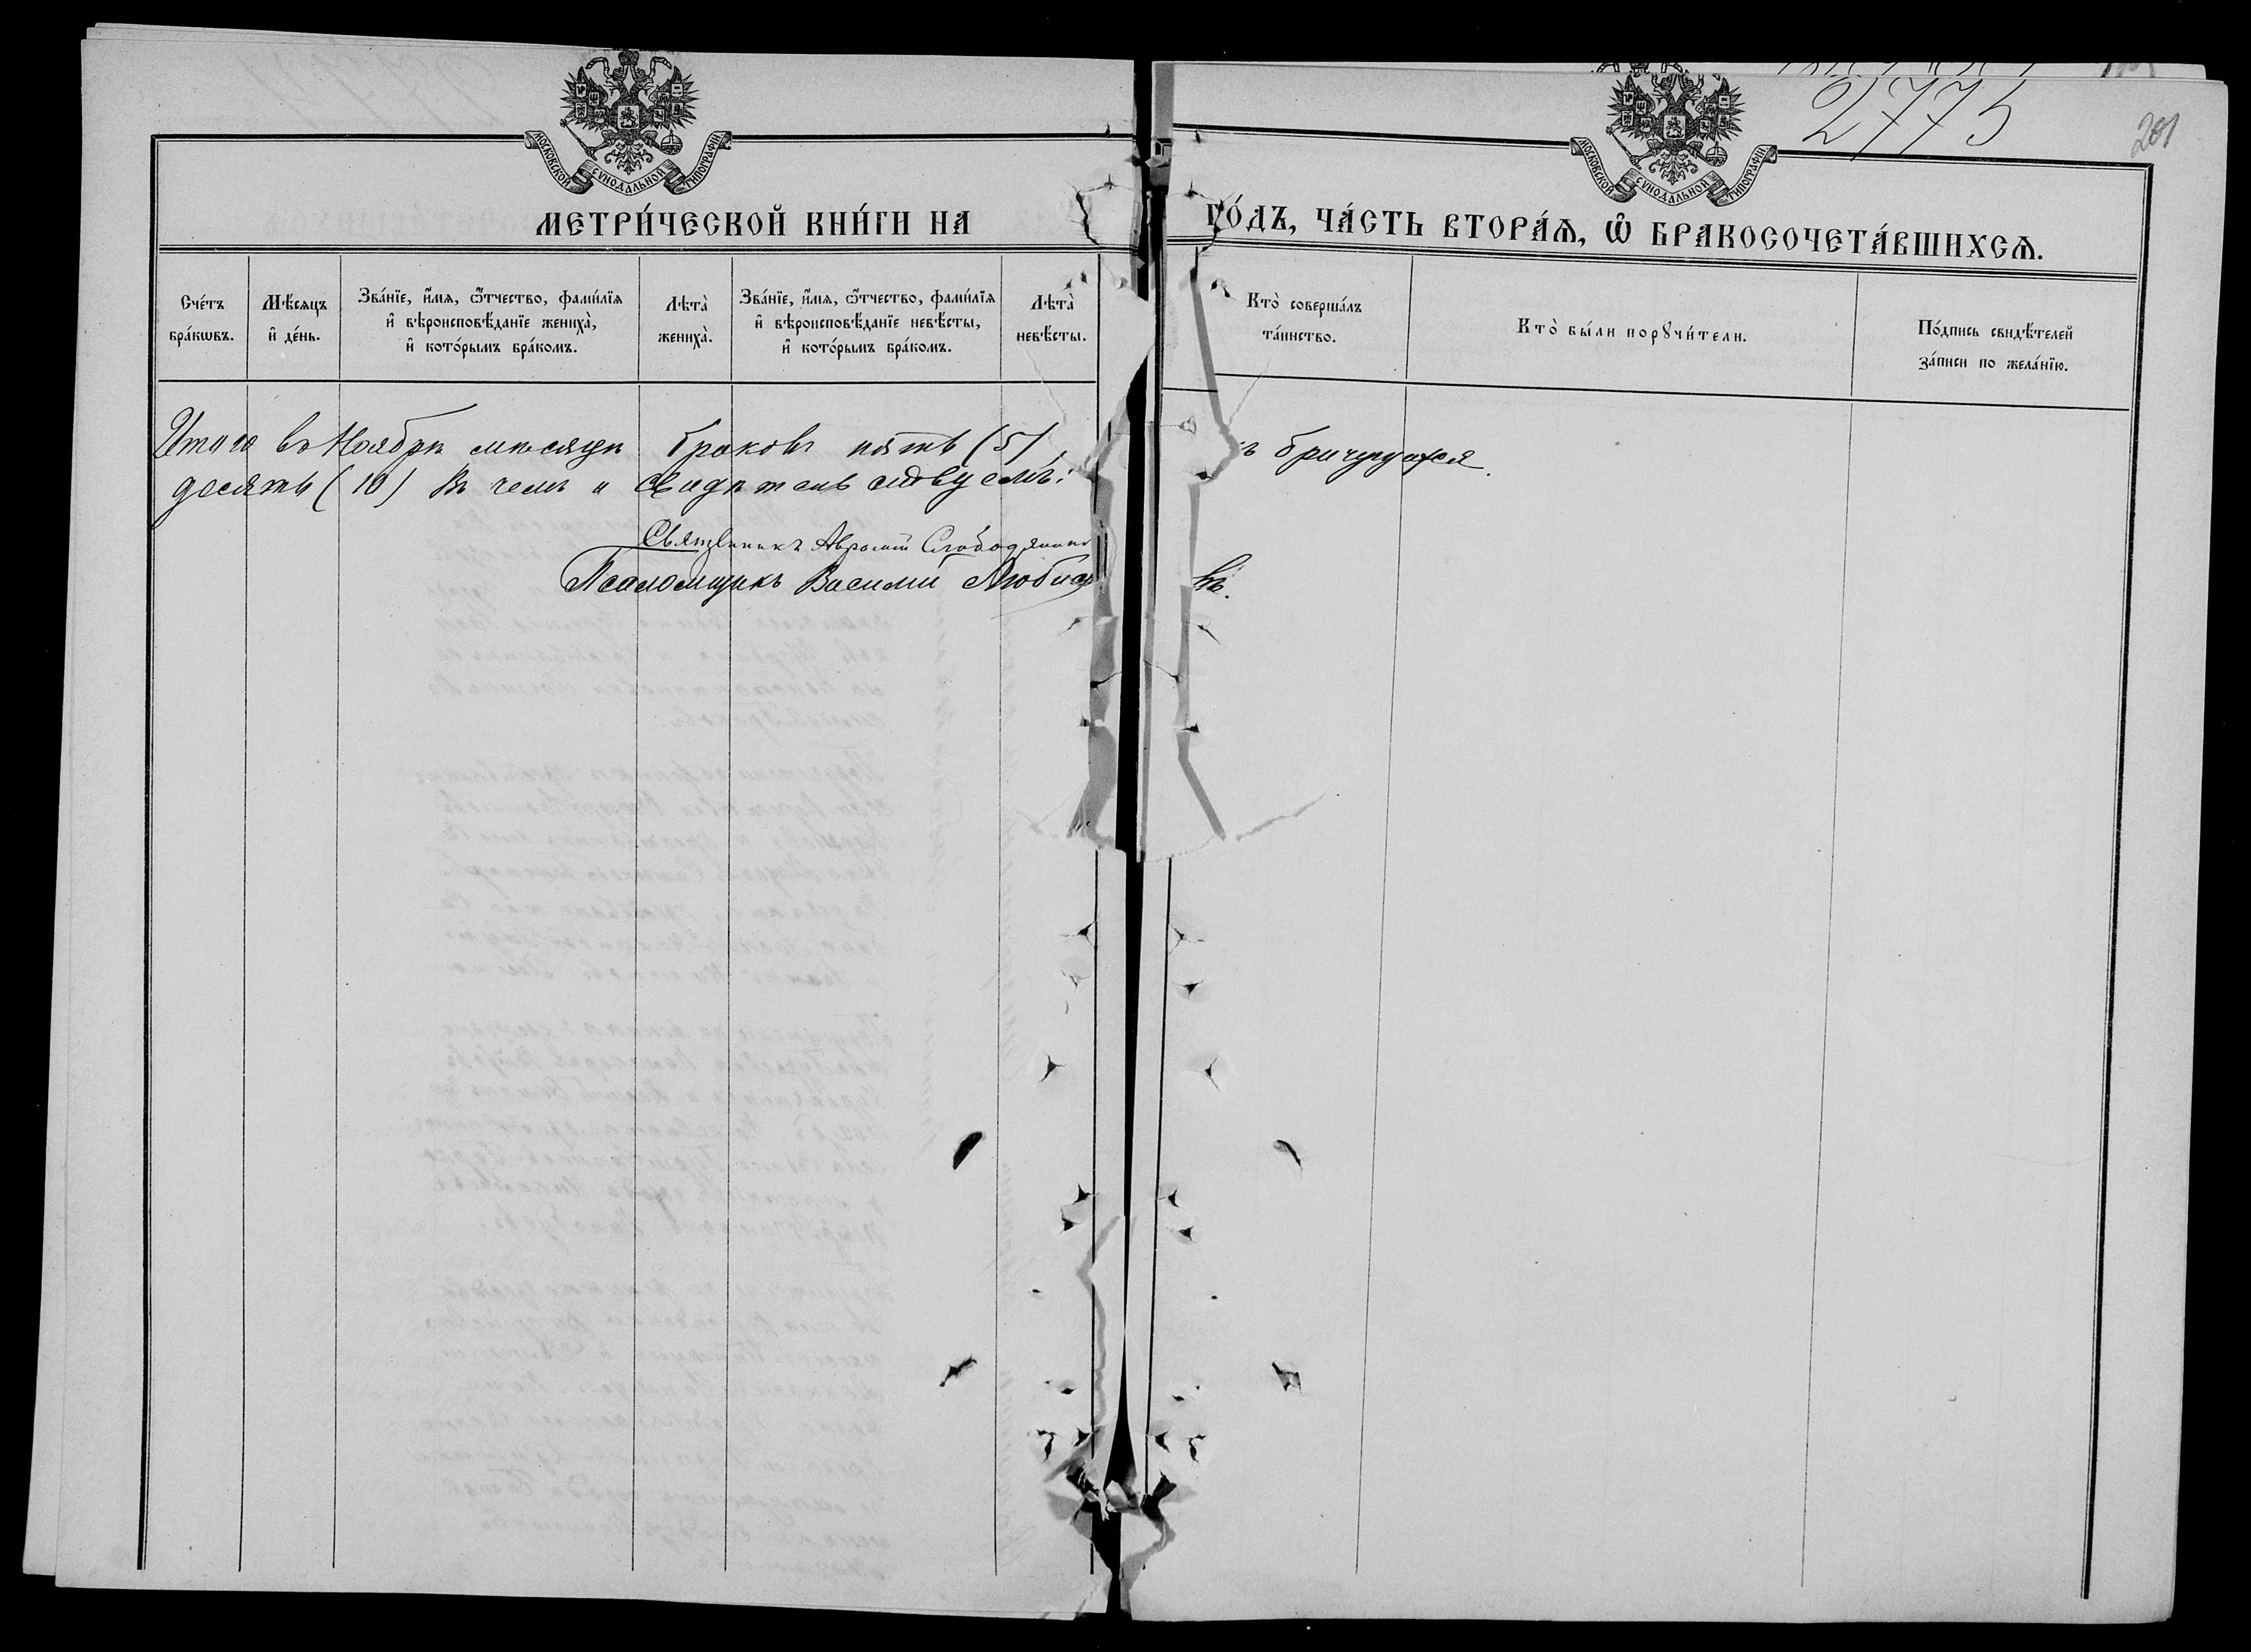 2775
201
МОСКОВСКОЙ СѴНОДАЛЬНОЙ ТИПОГРАФІИ
МОСКОВСКОЙ СѴНОДАЛЬНОЙ ТИПОГРАФІИ
МЕТРИ́ЧЕСКОЙ КНИ́ГИ НА ГО́ДЪ, ЧА́СТЬ ВТОРА́Ѧ, Ѽ БРАКОСОЧЕТА́ВШИХСѦ.
Сче́тъ бра́кѡвъ.
Мѣ́сяцъ и҆ де́нь.
Зва́нїе, и҆́мѧ, ѻ҆́тчество, фами́лїѧ и҆ вѣроисповѣ́данїе жениха̀, и҆ кото́рымъ бра́комъ.
Лѣта̀ жениха̀.
Зва́нїе, и҆́мѧ, ѻ҆́тчество, фами́лїѧ и҆ вѣроисповѣ́данїе невѣ́сты, и҆ кото́рымъ бра́комъ.
Лѣта̀ невѣ́сты.
Кто̀ соверша́лъ та́инство.
Кто̀ бы́ли порꙋчи́тели.
По́дпись свидѣ́телей за́писи по жела́нїю.
Итого въ Ноябрѣ мѣсяцѣ браковъ пять (5),
десять (10) Въ чемъ и свидѣтельствуемъ:
Священникъ
Псаломщикъ Василий